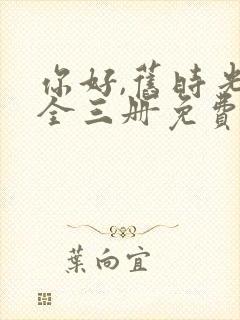 你好,舊時光
全三册免費
葉向宜